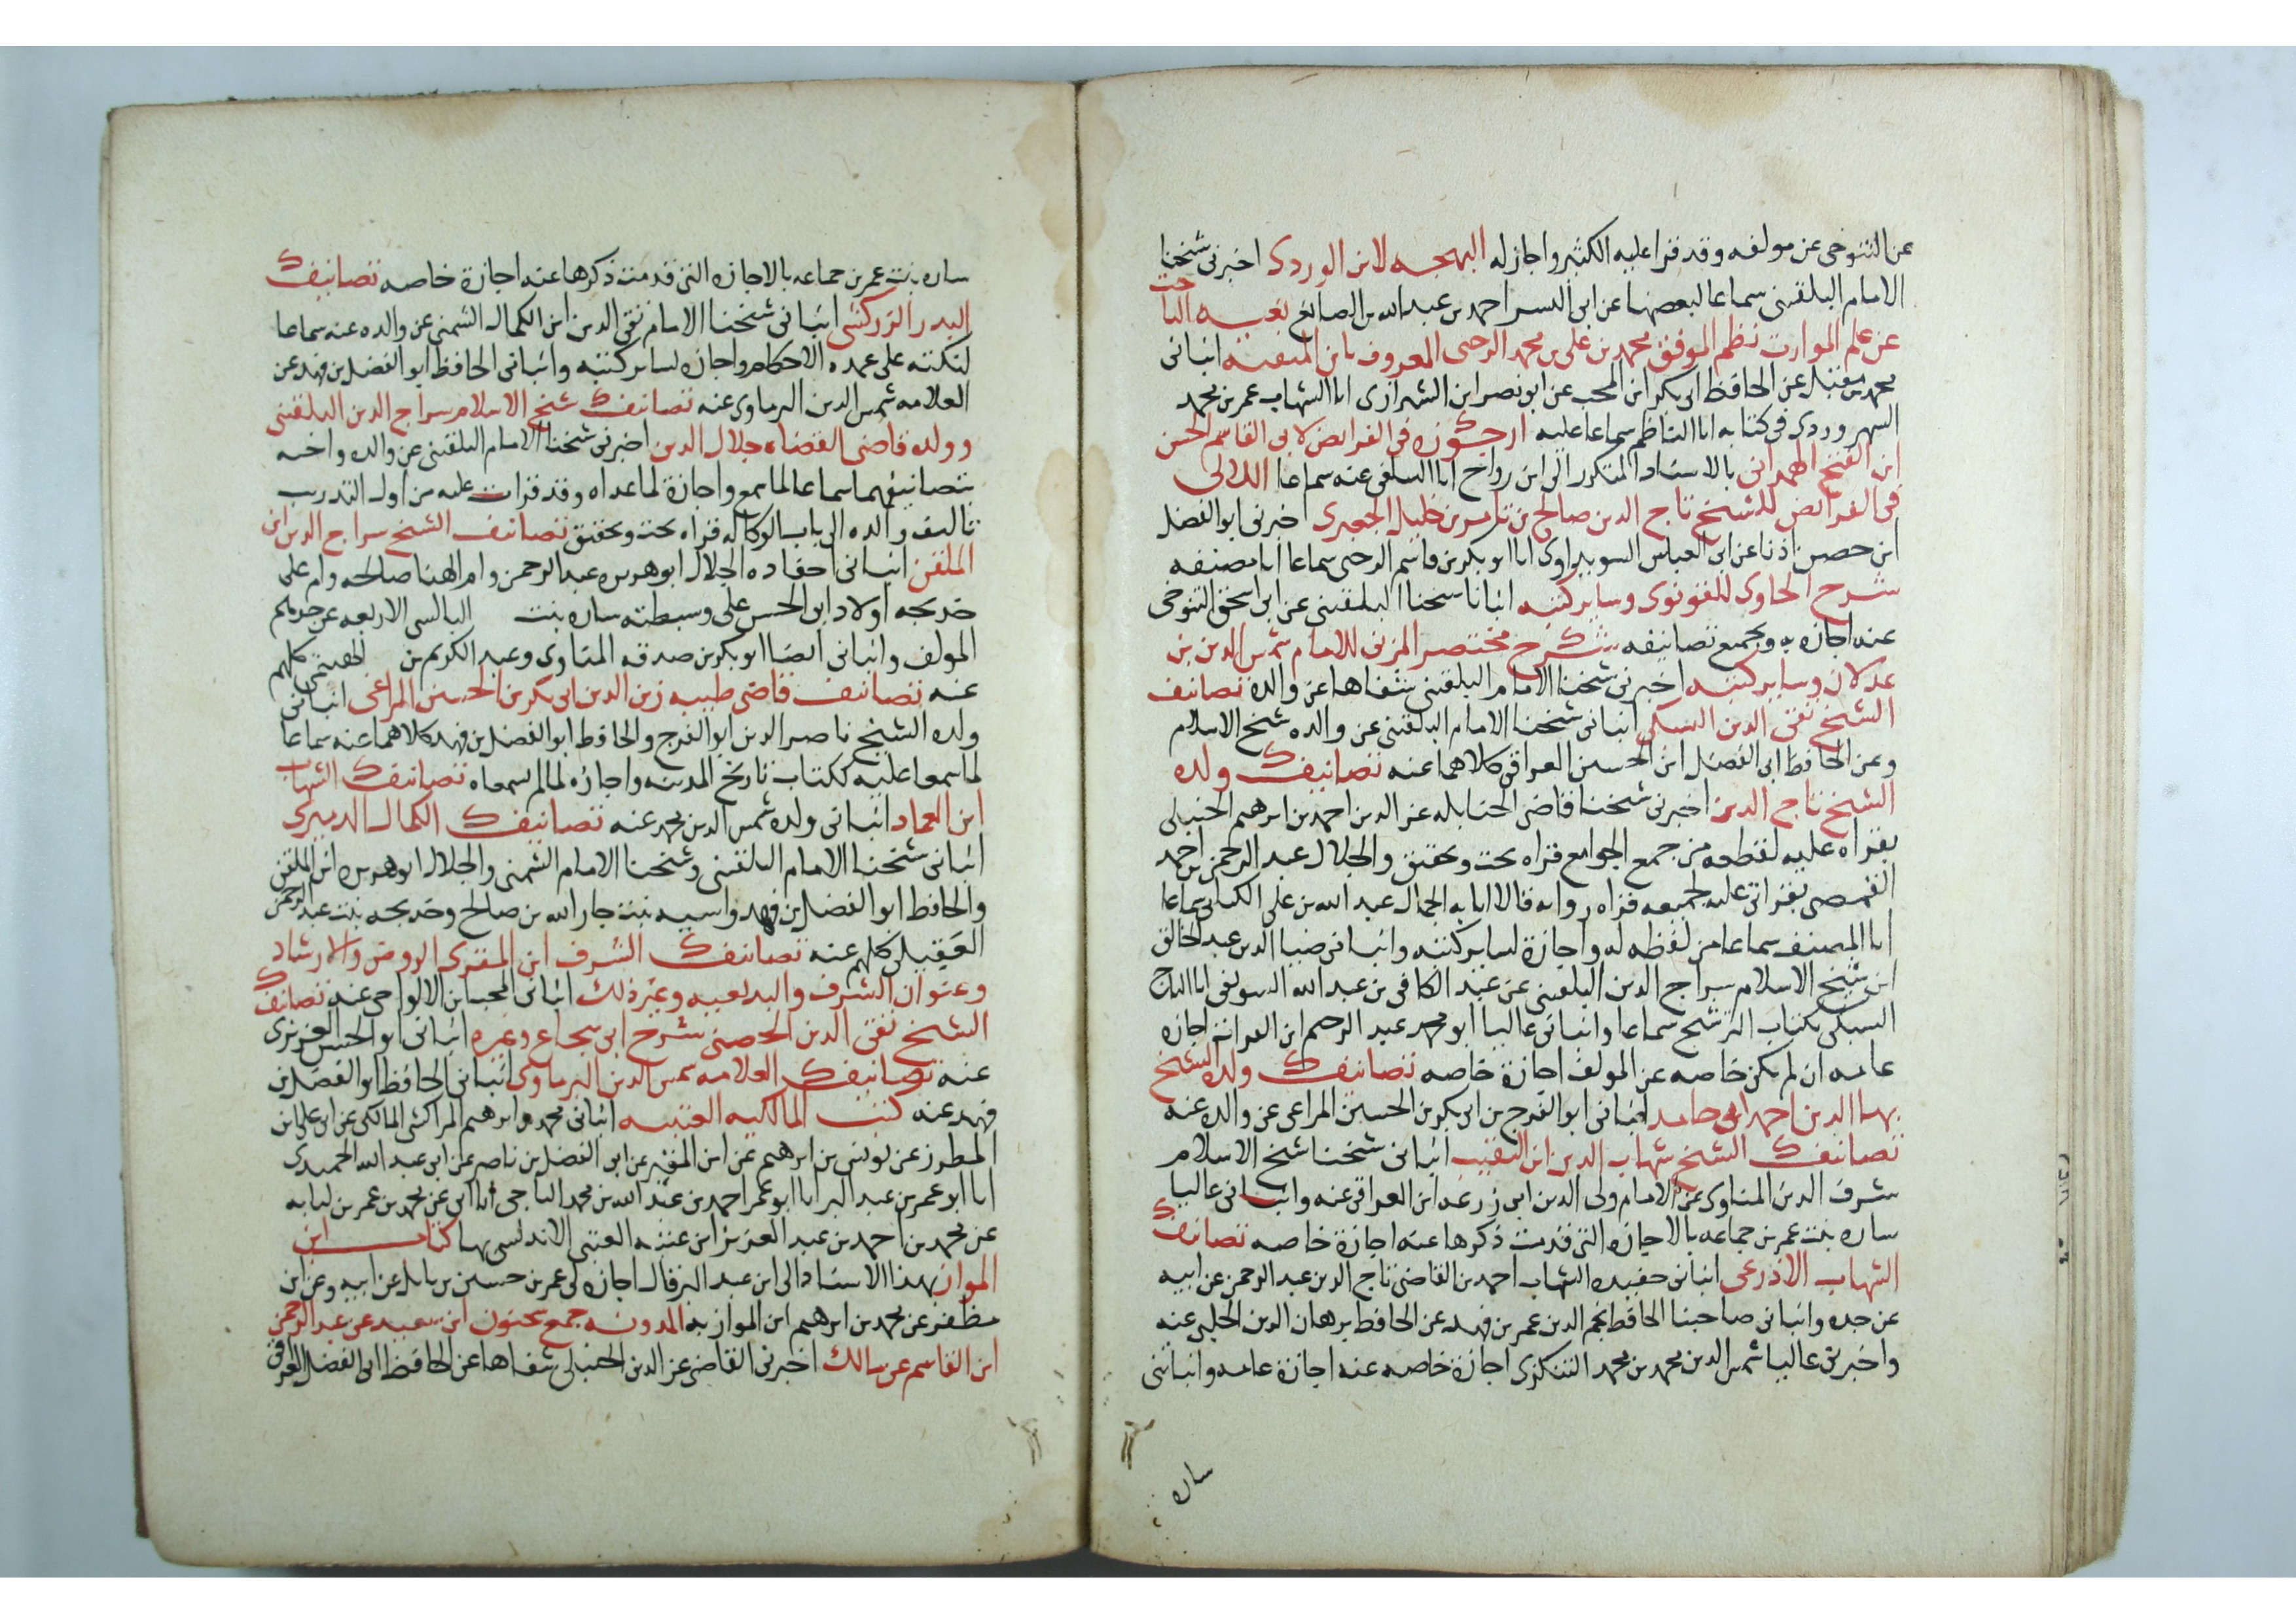 عن التنوخى عن مولفه وقد قرا عليه الكثير واجاز له البهجه لابن الوردى اخبرنى شيخنا
الامام البلقينى سماعا لبعضها عن ابى اليسر احمد بن عبد الله بن الصايغ بغيه الباحث
عن علم الموارث نظم الموفق محمد بن على بن محمد الرحبى المعروف بابن المتقنه انبانى
محمد بن مقبل عن الحافظ ابى بكر ابن المحب عن ابو نصر ابن الشيرازى انا الشهاب عمر بن محمد
السهروردى فى كتابه انا الناظم سماعا عليه ارجوزه فى الفرايض لابى القاسم الحسن
ابن الفتح الهمدانى بالاسناد المتكرر الى ابن رواح انا السلفى عنه سماعا اللالى
فى الفرائض للشيخ تاج الدين صالح بن تامر بن خليل الجعبرى اخبرنى ابو الفضل
ابن حصن اذنا عن ابى العباس السويداوى انا ابو بكر بن قاسم الرحبى سماعا انا مصنفه
شرح الحاوى للقونوى وساير كتبه انبانا شيخنا البلقينى عن ابى اسحق التنوخى
عنه اجازه به وبجميع تصانيفه شرح مختصر المزنى للامام شمس الدين بن
عدلان وساير كتبه اخبرنى شيخنا الامام البلقينى شفاها عن والده تصانيف
الشيخ تقى الدين السبكى انبانى شيخنا الامام البلقينى عن والده شيخ الاسلام
وعن الحافظ ابى الفضل ابن الحسين العراقى كلاهما عنه تصانيف ولده
الشيخ تاج الدين اخبرنى شيخنا قاضى الحنابله عز الدين احمد بن ابرهيم الحنبلى
بقراه عليه لقطعه من جمع الجوامع قراه بحث وتحقيق والجلال عبد الرحمن بن احمد
القمصى بقراتى عليه لجميعه قراه روايه قالا انا به الجمال عبد الله بن على الكنانى سماعا
انا المصنف سماعا من لفظه له واجازة لساير كتبه وانبانى ضيا الدين عبد الخالق
ابن شيخ الاسلام سراج الدين البلقينى عن عبد الكافى بن عبد الله السويفى انا التاج
السبكى بكتاب الترشيح سماعا وانبانى عاليا ابو محمد عبد الرحيم ابن الفرات اجازه
عامه ان لم يكن خاصه عن المولف اجازة خاصه تصانيف ولد الشيخ
بها الدين احمد ابى حامد انبانى ابو الفرج بن ابى بكر بن الحسين المراغى عن والده عنه
تصانيف الشيخ شهاب الدين ابن النقيب انبانى شيخنا شيخ الاسلام
شرف الدين المناوى عن الامام ولى الدين ابى زرعه ابن العراقى عنه وانبانى عاليا
ساره بنت عمر بن جماعه بالاجازه التى قدمت ذكرها عنه اجازة خاصه تصانيف
الشهاب الاذرعى انبانى حفيده الشهاب احمد بن القاضى تاج الدين عبد الرحمن عن ابيه
عن جده وانبانى صاحبنا الحافظ نجم الدين عمر بن فهد عن الحافظ برهان الدين الحلبى عنه
واخبرنى عاليا شمس الدين محمد بن محمد التنكزى اجازة خاصه عنه اجازة عامه وانباتنى
ساره
ساره بنت عمر بن جماعه بالاجازه التى قدمت ذكرها عنه اجازة خاصه تصانيف
البدر الزركشى انبانى شيخنا الامام تقى الدين ابن الكمال الشمنى عن والده عنه سماعا
لنكته على عمده الاحكام واجازه لساير كتبه وانبانى الحافظ ابو الفضل بن فهد عن
العلامه شمس الدين البرماوى عنه تصانيف شيخ الاسلام سراج الدين البلقينى
وولده قاضى القضاه جلال الدين اخبرنى شيخنا الامام البلقينى عن والده واخيه
بتصانيفهما سماعا لما سمع واجازة لما عداه وقد قرات عليه من اول التدريب
تاليف والده الى باب الوكاله قراه بحث وتحقيق تصانيف الشيخ سراج الدين ابن
الملقن انبانى احفاده الجلال ابو هريره عبد الرحمن وام الهنا صالحه وام على
خديجه اولاد ابى الحسن على وسبطته ساره بنت البالسى الاربعه عن جدهم
المولف وانبانى ايضا ابو بكر بن صدقه المناوى وعبد الكريم بن كلهم
عنه تصانيف قاضى طيبه زين الدين ابى بكر بن الحسين المراغى انبانى
ولده الشيخ ناصر الدين ابو الفرج والحافظ ابو الفضل بن فهد كلاهما عنه سماعا
لما سمعا عليه ككتاب تاريخ المدينه واجازه لما لم يسمعاه تصانيف الشهاب
ابن العماد انبانى ولده شمس الدين محمد عنه تصانيف الكمال الدميرى
انبانى شيخنا الامام البلقينى وشيخنا الامام الشمنى والجلال ابو هريره ابن الملقن
والحافظ ابو الفضل بن فهد واسيه بنت جار الله بن صالح وخديجه بنت عبد الرحمن
العقيلى كلهم عنه تصانيف الشرف ابن المقرى الروض والارشاد
وعنوان الشرف والبديعيه وغير ذلك انبانى المحب ابن الالواحى عنه تصانيف
الشيخ تقى الدين الحصنى شرح ابى شجاع وغيره انبانى ابو الحسن العزيزى
عنه تصانيف العلامه شمس الدين البرماوى انبانى الحافظ ابو الفضل بن
فهد عنه كتب المالكيه العتبيه انبانى محمد و ابرهيم المراكشى المالكى عن ابى على ابن
المطرز عن يونس بن ابرهيم عن ابن المقير عن ابو الفضل بن ناصر عن ابى عبد الله الحميدى
انا ابو عمر بن عبد البر انا ابو عمر احمد بن عبد الله بن محمد الباجى انا ابى عن محمد بن عمر بن لبابه
عن محمد بن احمد بن عبد العزيز ابن عتبه العتبى الاندلسى بها كتاب ابن
المواز بهذا الاسناد الى ابن عبد البر قال اجازه لى عمر بن حسين بن نابل عن ابيه وعن ابن
مظفر عن محمد بن ابرهيم ابن المواز به المدونه جمع سحنون ابن سعيد عن عبد الرحمن
ابن القاسم عن مالك اخبرنى القاضى عز الدين الحنبلى شفاها عن الحافظ ابى الفضل العراقى